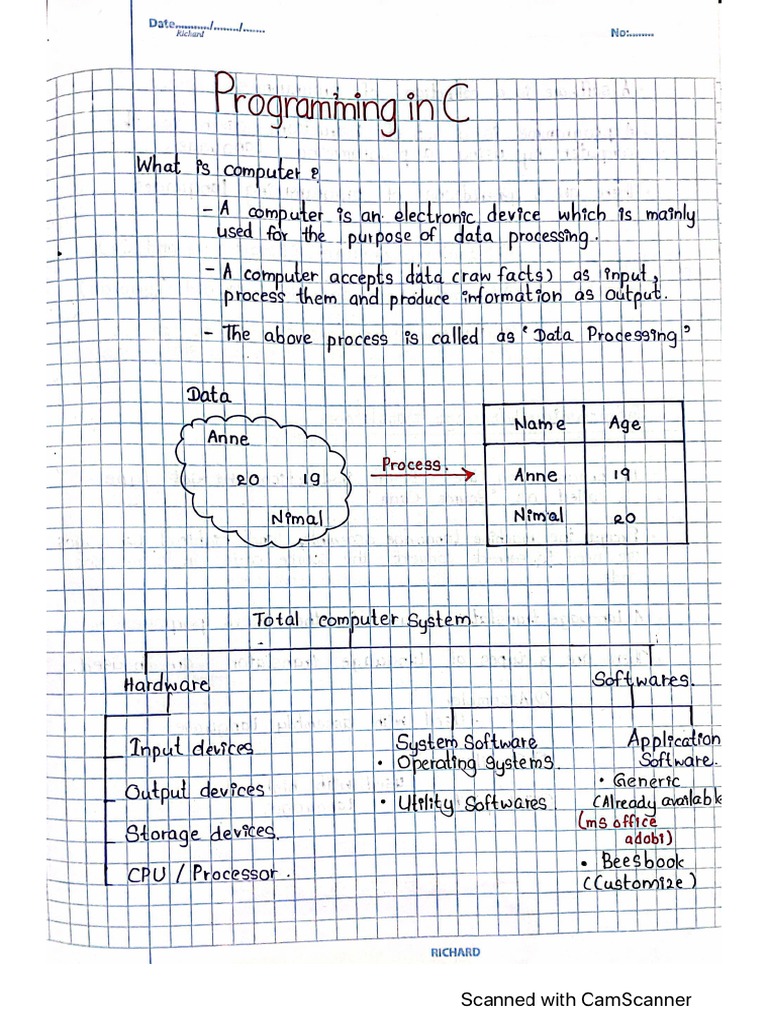 Date........../......../.......
Richard
No:........
Programming in C
What is computer?
- A computer is an electronic device which is mainly
used for the purpose of data processing.
- A computer accepts data (raw facts) as input,
process them and produce information as output.
- The above process is called as "Data Processing"
Data
Anne
20 19
Nimal
Process.
Name Age
Anne 19
Nimal 20
Total computer System
Hardware
Softwares.
Input devices
Output devices
Storage devices.
CPU / Processor.
System Software
• Operating Systems.
• Utility Softwares
Application
Software.
• Generic
(Already available
(ms office
adobi)
• Beesbook
(Customize)
RICHARD
Scanned with CamScanner